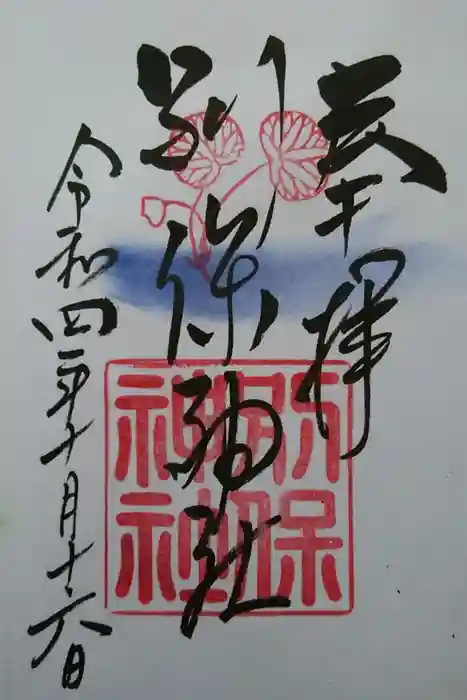 奉拝
別保神社
別保
神社
令和四年十月十六日